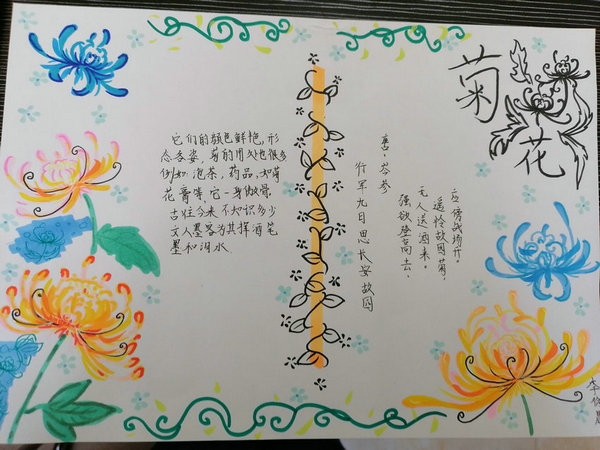 菊花
它们的颜色鲜艳,形
态各姿,菊的用处也很多
例如:泡茶,药品,如菊
花膏等,它一身傲骨,
古往今来不知识多少
文人墨客为其挥洒笔
墨和泪水
行军九日思长安故园
唐·岑参
强欲登高去,
无人送酒来。
遥怜故园菊,
应傍战场开。
李